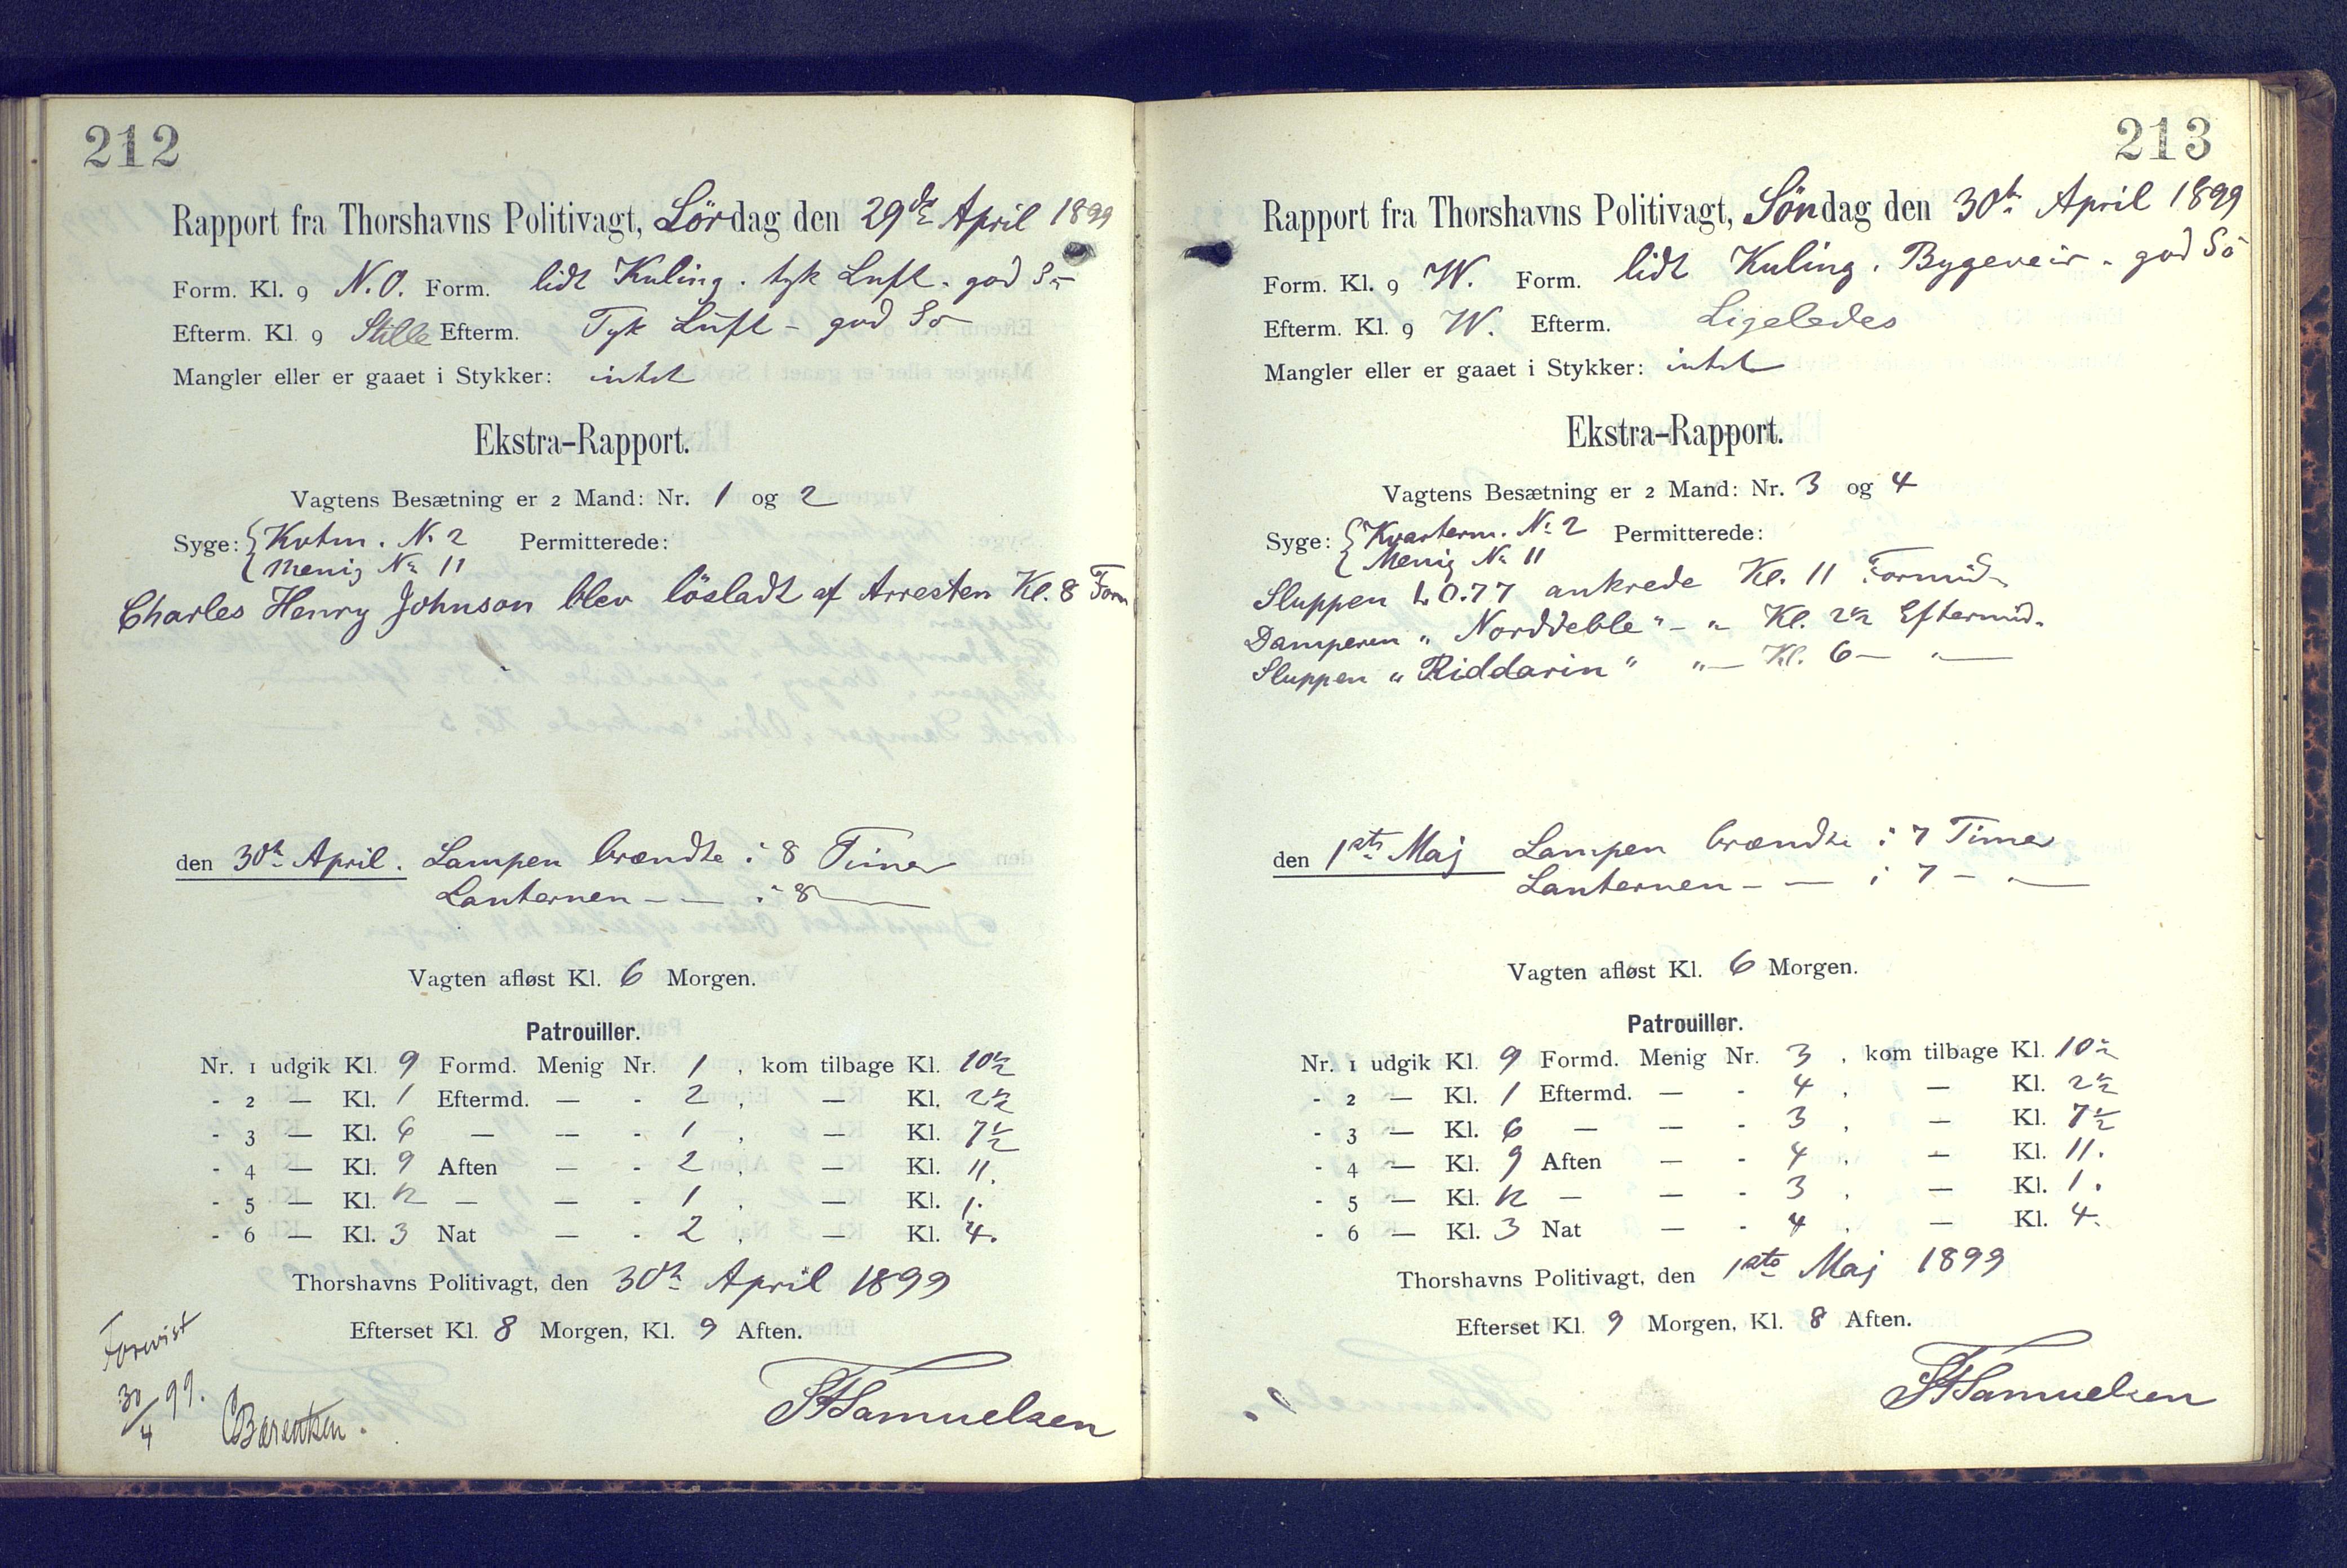 212
Rapport fra Thorshavns Politivagt, Lördag den 29de April 1899
Form. Kl. 9 N.O. Form. lidt Kuling. tyk Luft - god Sö
Efterm. Kl. 9 Stille Efterm. Tyk Luft - god Sö
Mangler eller er gaaet i Stykker: intet
Ekstra-Rapport.
Vagtens Besætning er 2 Mand: Nr. 1 og 2
Syge: { Kvtm. No 2 Permitterede:
Menig No 11
Charles Henry Johnson blev lösladt af Arresten Kl. 8 Form
den 30te April. Lampen brændte i 8 Timer
Lanternen - — i 8 —
Vagten afløst Kl. 6 Morgen.
Patrouiller.
Nr. 1 udgik Kl. 9 Formd. Menig Nr. 1 , kom tilbage Kl. 10½
- 2 — Kl. 1 Eftermd. — - 2 , — Kl. 2½
- 3 — Kl. 6 — — - 1 , — Kl. 7½
- 4 — Kl. 9 Aften — - 2 , — Kl. 11.
- 5 — Kl. 12 — — - 1 , — Kl. 1.
- 6 — Kl. 3 Nat — - 2 , — Kl. 4.
Thorshavns Politivagt, den 30te April 1899
Efterset Kl. 8 Morgen, Kl. 9 Aften.
Forevist
30/4 99.
CBærentsen.
Samuelsen
213
Rapport fra Thorshavns Politivagt, Söndag den 30te April 1899
Form. Kl. 9 W. Form. lidt Kuling. Bygeveir - god Sö
Efterm. Kl. 9 W. Efterm. Ligeledes
Mangler eller er gaaet i Stykker: intet
Ekstra-Rapport.
Vagtens Besætning er 2 Mand: Nr. 3 og 4
Syge: { Kvarterm. No 2 Permitterede:
Menig No 11
Sluppen 77 ankrede Kl. 11 Formid-
Damperen „ Norddeble " - „ Kl. 2½ Eftermid.
Sluppen „ Riddarin " „ — Kl. 6 — „ —
den 1ste Maj Lampen brændte i 7 Timer
Lanternen - — i 7 - „ —
Vagten afløst Kl. 6 Morgen.
Patrouiller.
Nr. 1 udgik Kl. 9 Formd. Menig Nr. 3 , kom tilbage Kl. 10½
- 2 — Kl. 1 Eftermd. — - 4 , — Kl. 2½
- 3 — Kl. 6 — — - 3 , — Kl. 7½
- 4 — Kl. 9 Aften — - 4 , — Kl. 11.
- 5 — Kl. 12 — — - 3 , — Kl. 1.
- 6 — Kl. 3 Nat — - 4 , — Kl. 4.
Thorshavns Politivagt, den 1ste Maj 1899
Efterset Kl. 9 Morgen, Kl. 8 Aften.
Samuelsen